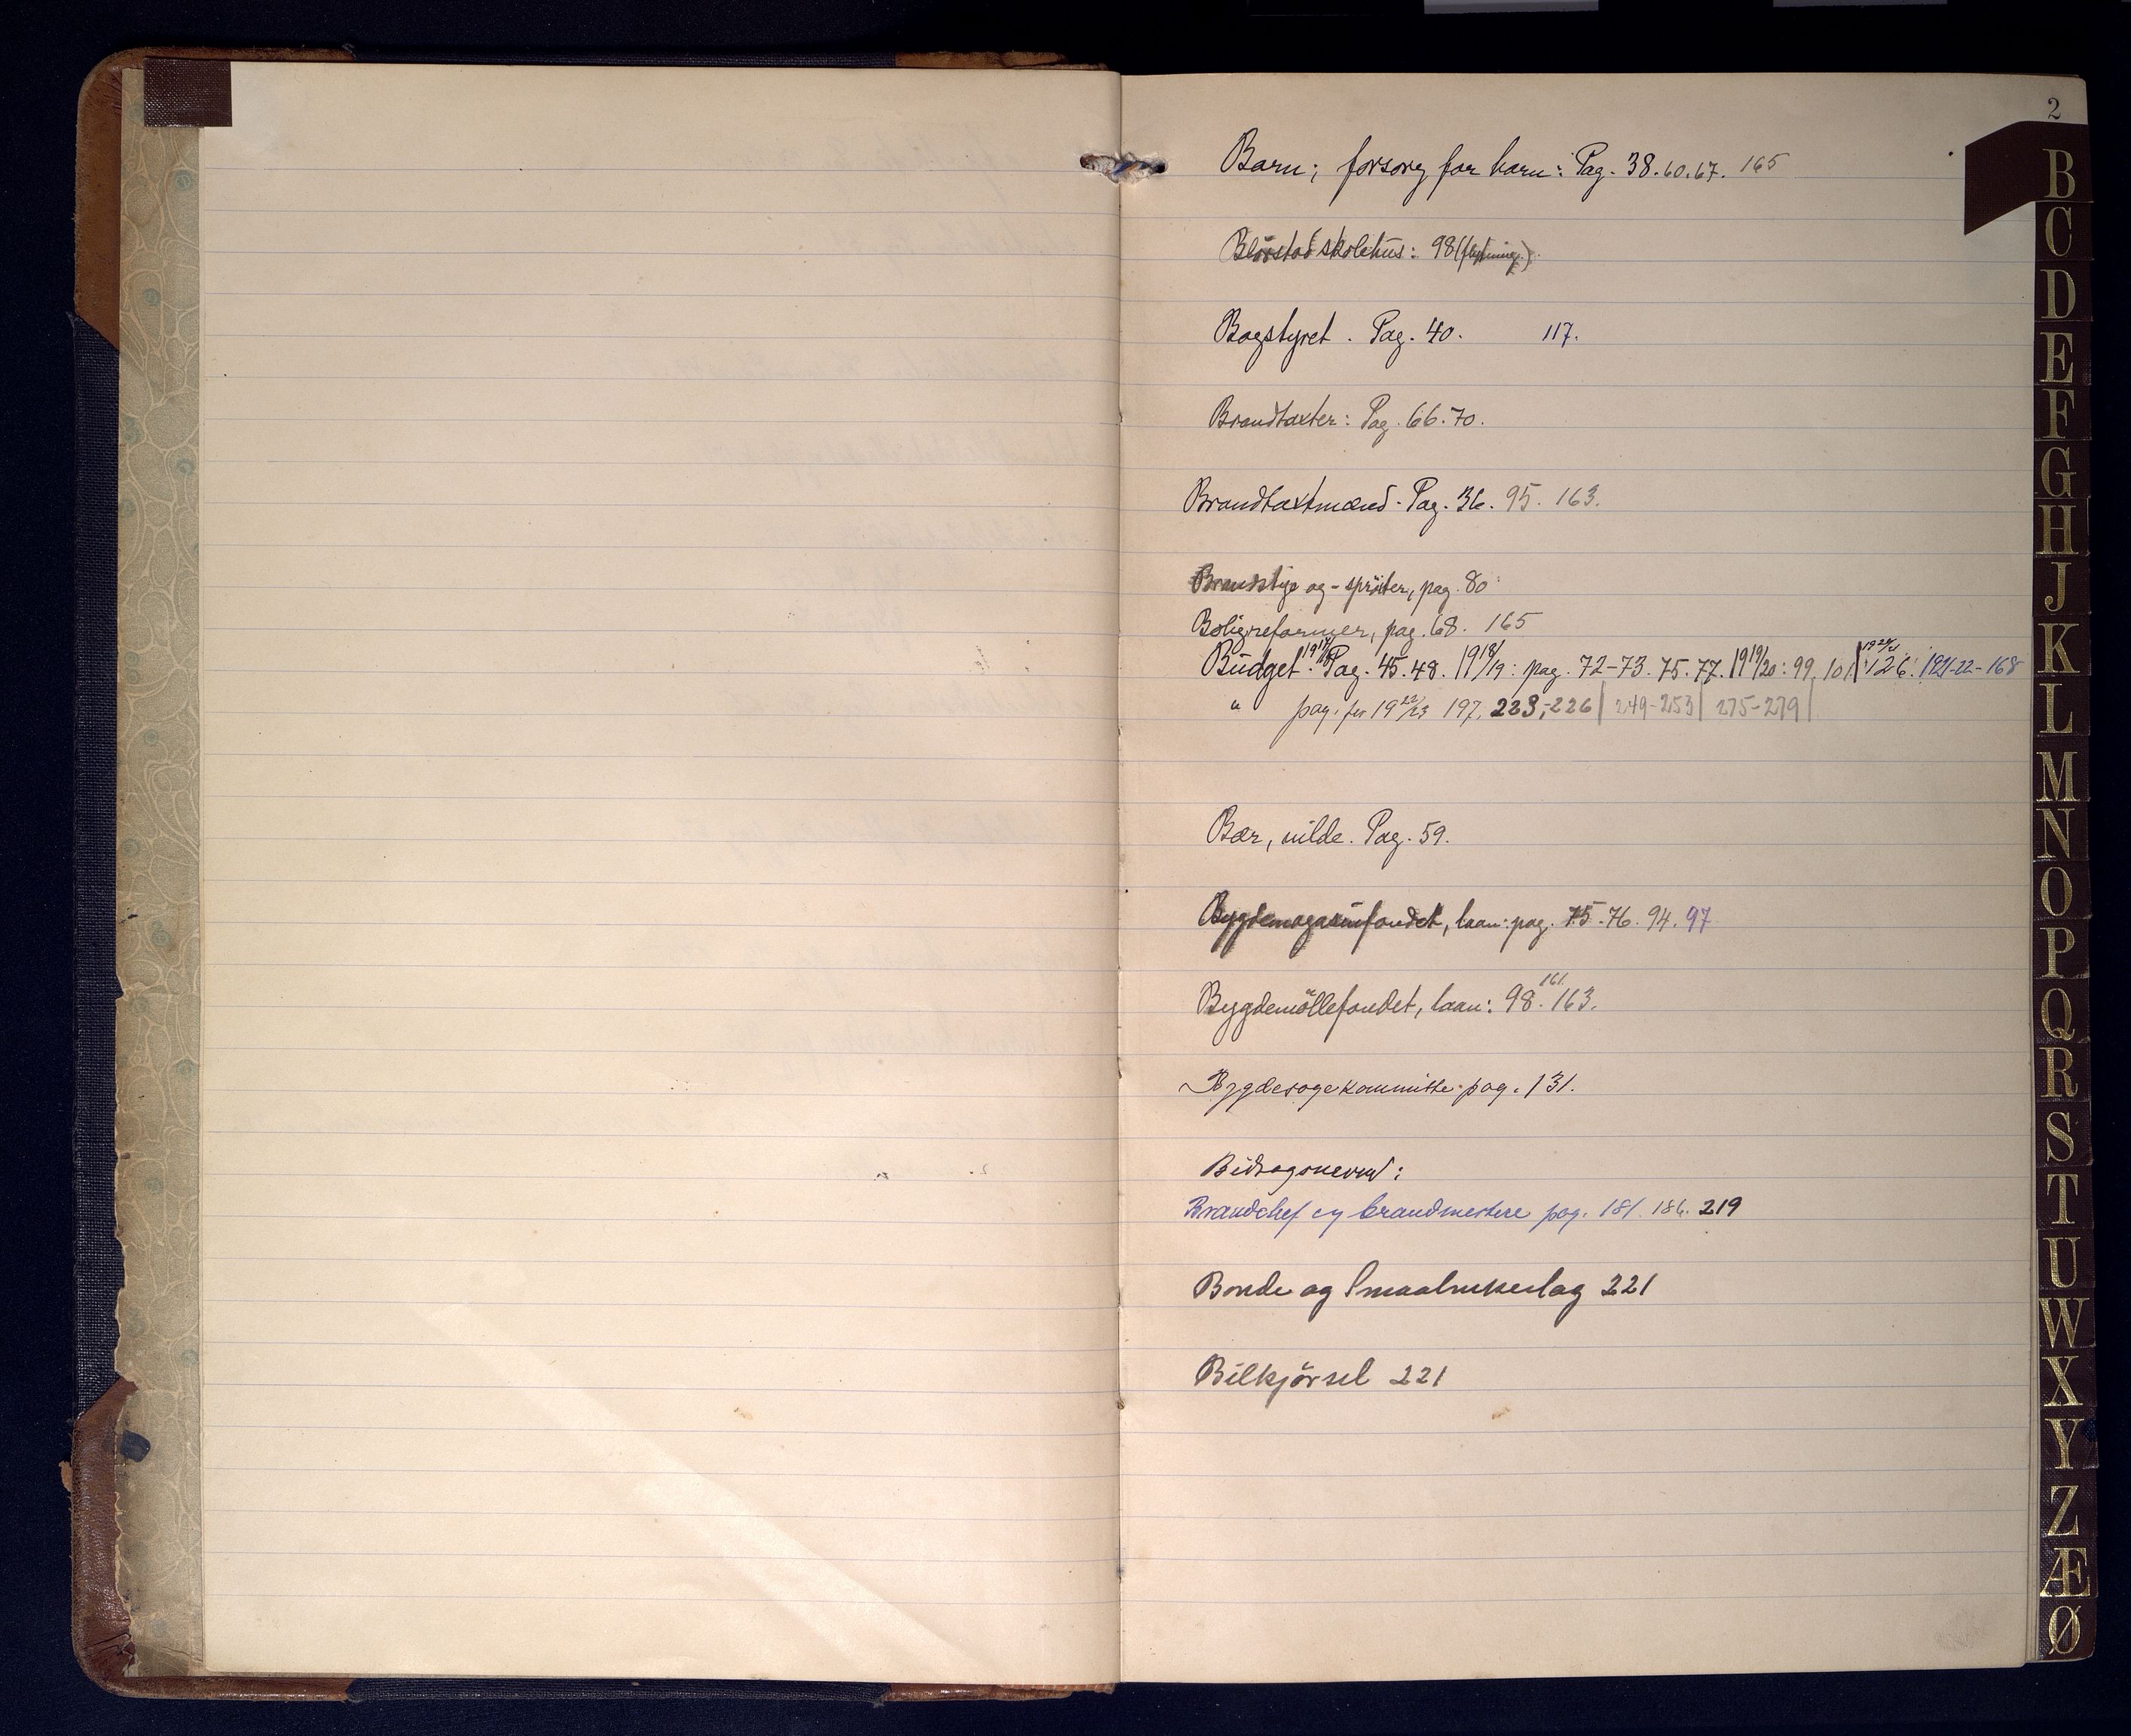 2
Barn; forsorg for barn: Pag. 38. 60. 67. 165
skolehus: 98 (flytning.)
Bogstyret. Pag. 40. 117.
Brandtaxter: Pag. 66. 70.
Brandtaxtmænd. Pag. 36. 95. 163.
og - sprøiter, pag. 80
Boligreformer, pag. 68. 165
Budget. Pag. 45. 48. 1918/19: pag. 72-73. 75. 77. 1919/20: 99. 101 1920/21 126. 1921-22 - 168
" pag. for 1922/23 197. 223,-226| 249-253| 275-279|
Bær, vilde. Pag. 59.
Bygdemagasinfondet, laan: pag. 75-76. 94. 97
161
Bygdemöllefondet, laan: 98. 163.
Bygdesogekommitte pag. 131.
Bidragsnevnd:
Brandchef og brandmestere pag. 181. 186. 219
Bonde og Smaabrukerlag 221
Bilkjörsel 221
B
C
D
E
F
G
H
J
K
L
M
N
O
P
Q
R
S
T
U
W
X
Y
Z
Æ
Ø